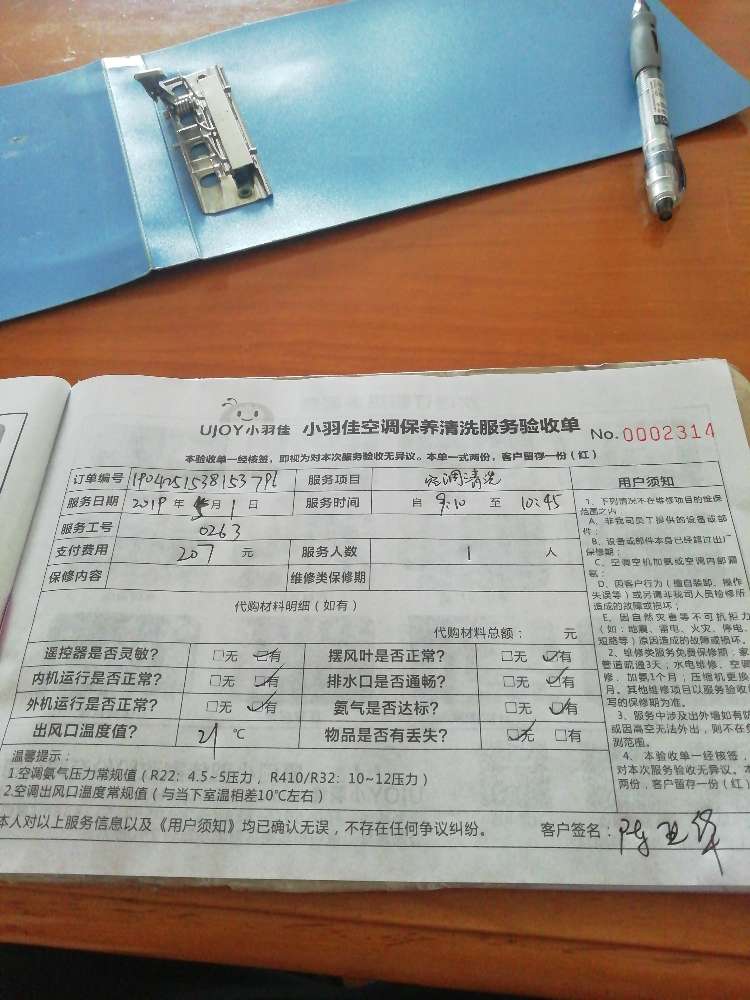 UJOY小羽佳 小羽佳空调保养清洗服务验收单 No.0002314
本验收单一经核签，即视为对本次服务验收无异议。本单一式两份，客户留存一份（红）
订单编号 服务项目 空调清洗
服务日期 2019 年 5 月 1 日 服务时间 自 9:10 至 10:45
服务工号 0263
支付费用 207 元 服务人数 1 人
保修内容 维修类保修期
代购材料明细（如有）
代购材料总额： 元
遥控器是否灵敏? □无 ☑有 摆风叶是否正常? □无 ☑有
内机运行是否正常? □无 ☑有 排水口是否通畅? □无 ☑有
外机运行是否正常? □无 ☑有 氨气是否达标? □无 ☑有
出风口温度值? 21 ℃ 物品是否有丢失? ☑无 □有
温馨提示：
1.空调氨气压力常规值（R22：4.5~5压力， R410/R32：10~12压力）
2.空调出风口温度常规值（与当下室温相差10℃左右）
本人对以上服务信息以及《用户须知》均已确认无误，不存在任何争议纠纷。 客户签名：
用户须知
1、下列情况不在维修项目的维保
范围之内
A、非我司员工提供的设备或部
件；
B、设备或部件本身已经超过出厂
保修期；
C、空调空机加氨或空调内部漏
氨；
D、因客户行为（擅自装卸、操作
失误等）或另请非我司人员检修所
造成的故障或损坏；
E、因自然灾害等不可抗拒力
（如：地震、雷电、火灾、停电、
短路等）原因造成的故障或损坏。
2、维修类服务免费保修期：家
管道疏通3天；水电维修、空调
修、加氨1个月；压缩机更换
月。其他维修项目以服务验收
写的保修期为准。
3、服务中涉及出外墙如有防
或因高空无法外出，则不在
测范围。
4、本验收单一经核签，
对本次服务验收无异议。本
两份，客户留存一份（红）